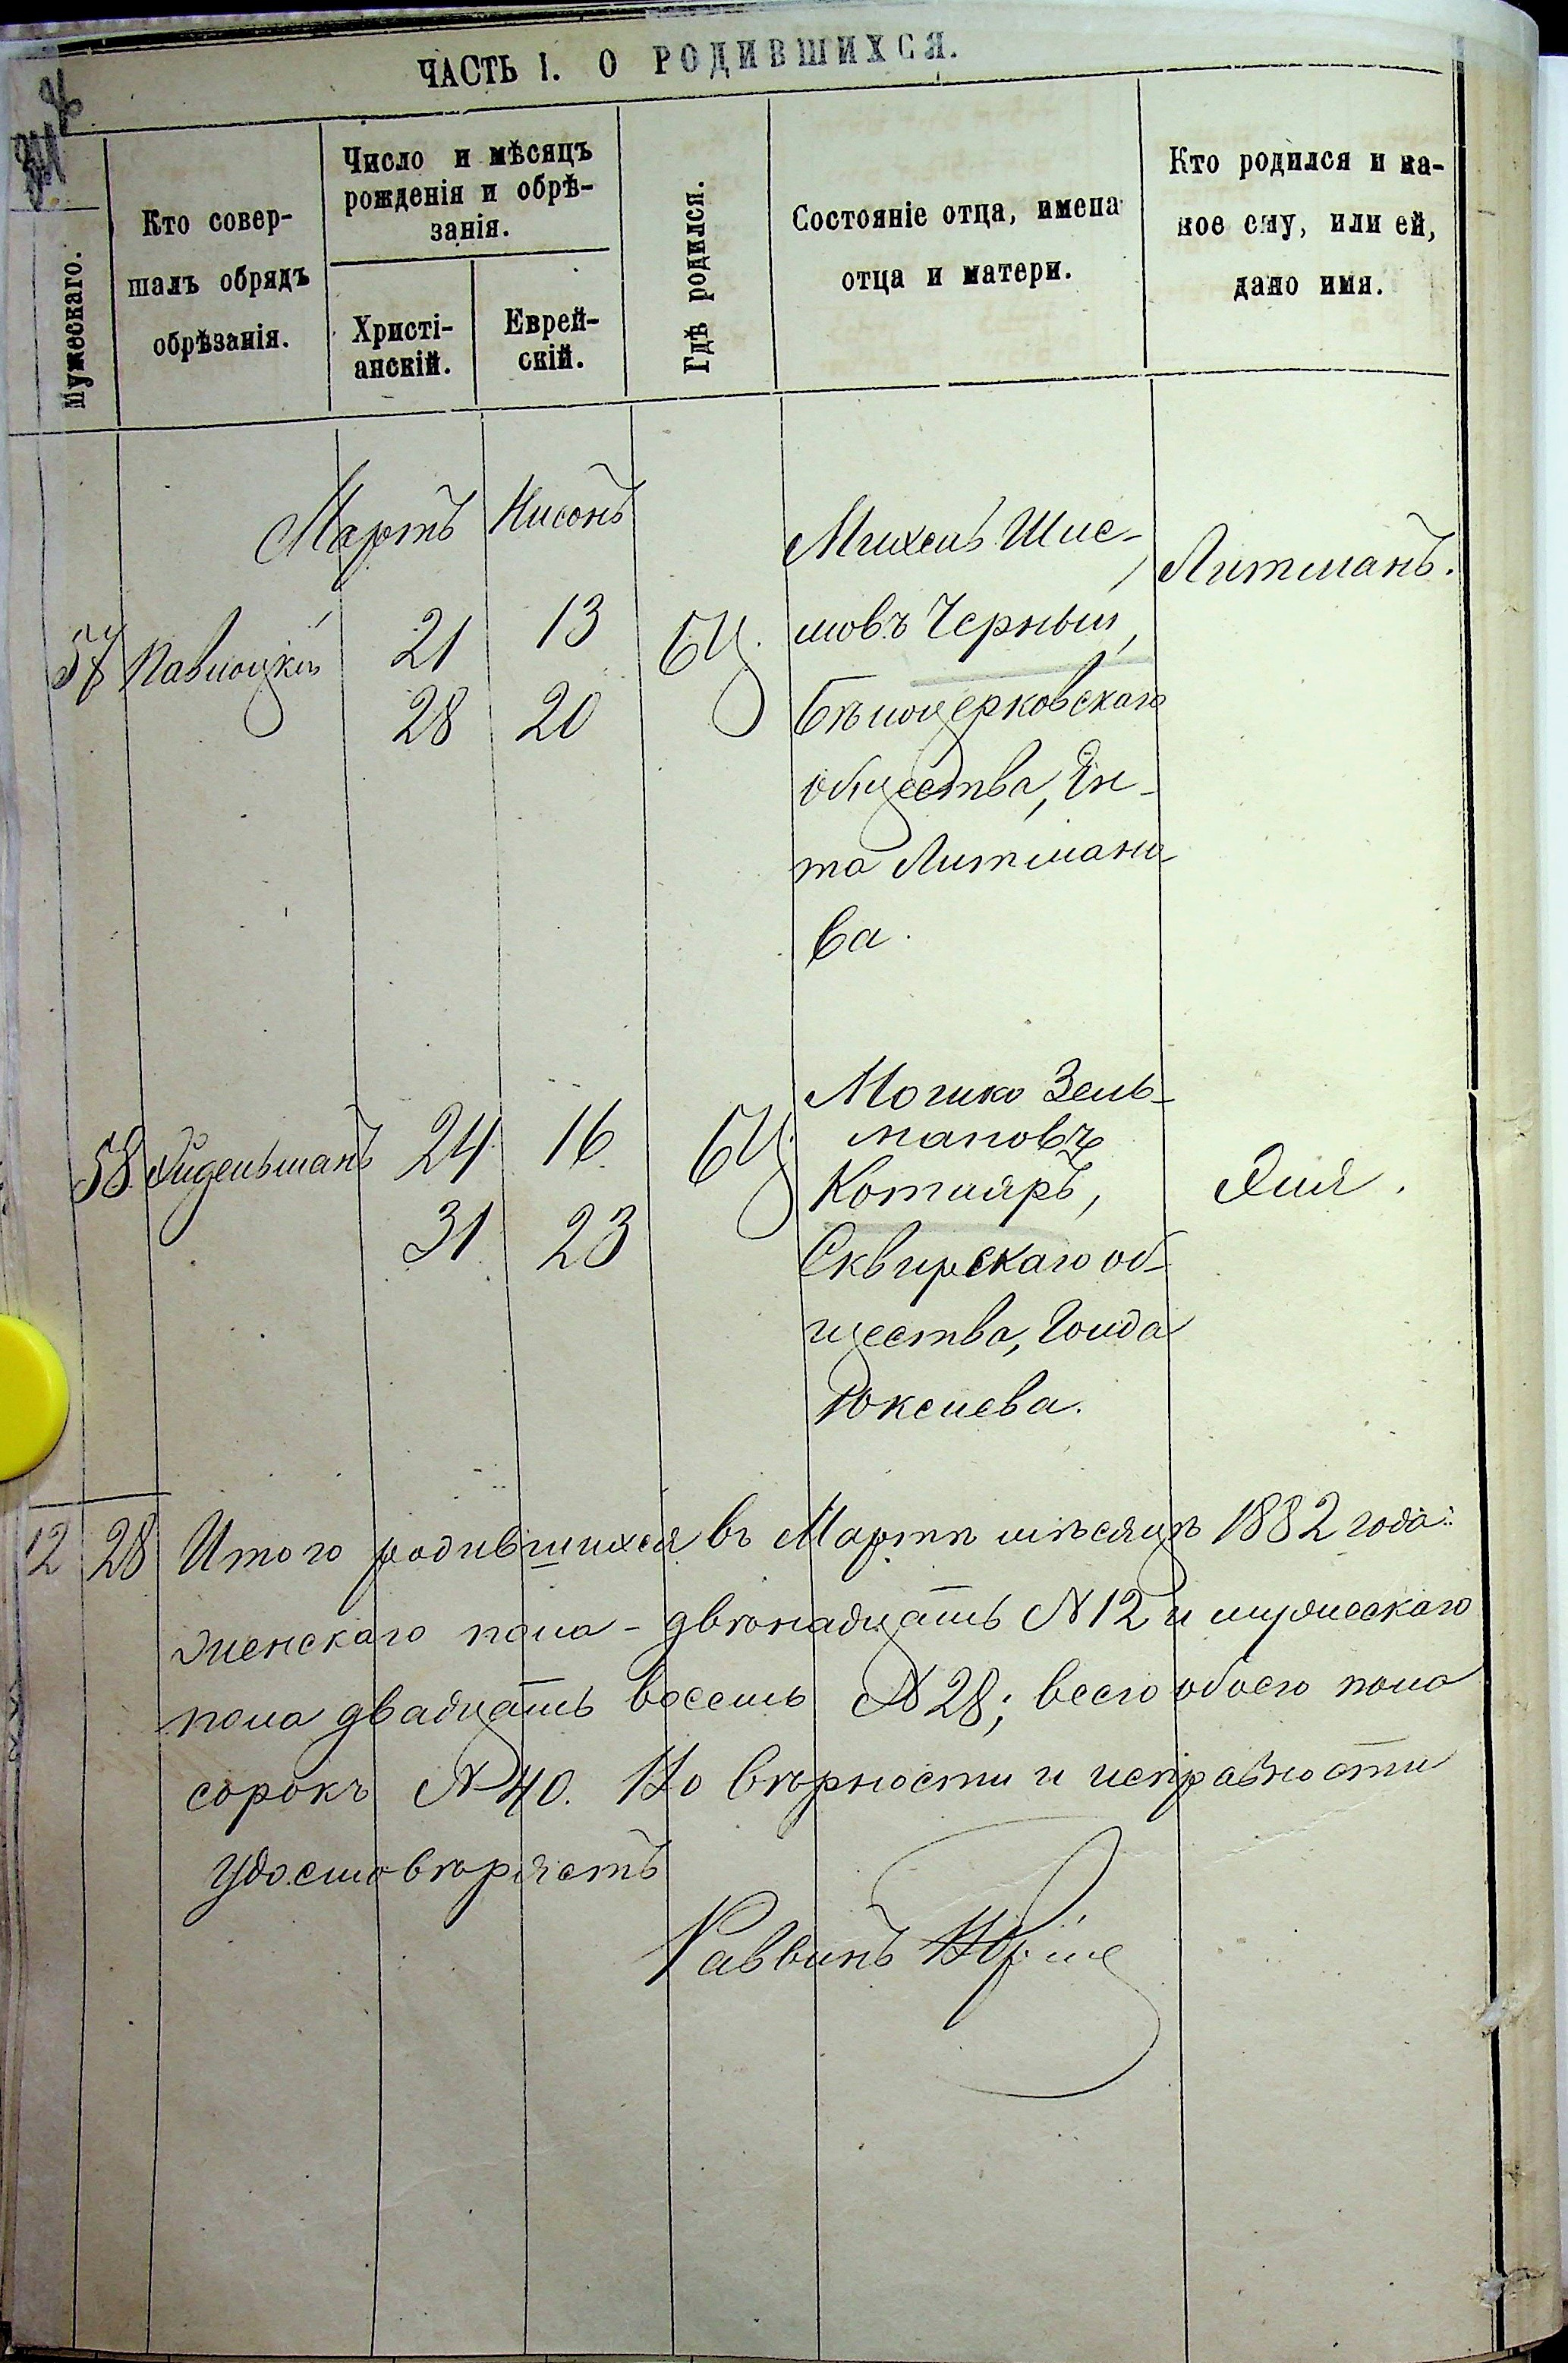 ЧАСТЬ I. О РОДИВШИХСЯ.
Мужескаго.
Кто совер-
шалъ обрядъ
обрѣзанія.
Число и мѣсяцъ
рожденія и обрѣ-
занія.
Христі-
анскій.
Еврей-
скій.
Гдѣ родился.
Состояніе отца, имена
отца и матери.
Кто родился и ка-
кое ему, или ей,
дано имя.
Мартъ Нисонъ
57 Павлоцкій 21 13 БЦ.
28 20
Михель Шле-
мовъ Черный,
Бѣлоцерковскаго
общества, Ен-
та Литмано-
ва.
Литманъ.
58 24 16 БЦ.
31 23
Мошко Зель-
мановъ
Котляръ,
Сквирскаго об-
щества, Голда
Юкелева.
12 28 Итого родившихся въ Мартѣ мѣсяцѣ 1882 года:
женскаго пола - двѣнадцать N 12 и мужескаго
пола двадцать восемь N 28; всего обоего пола
сорокъ N 40. Но вѣрности и исправности
удостовѣряетъ
Раввинъ